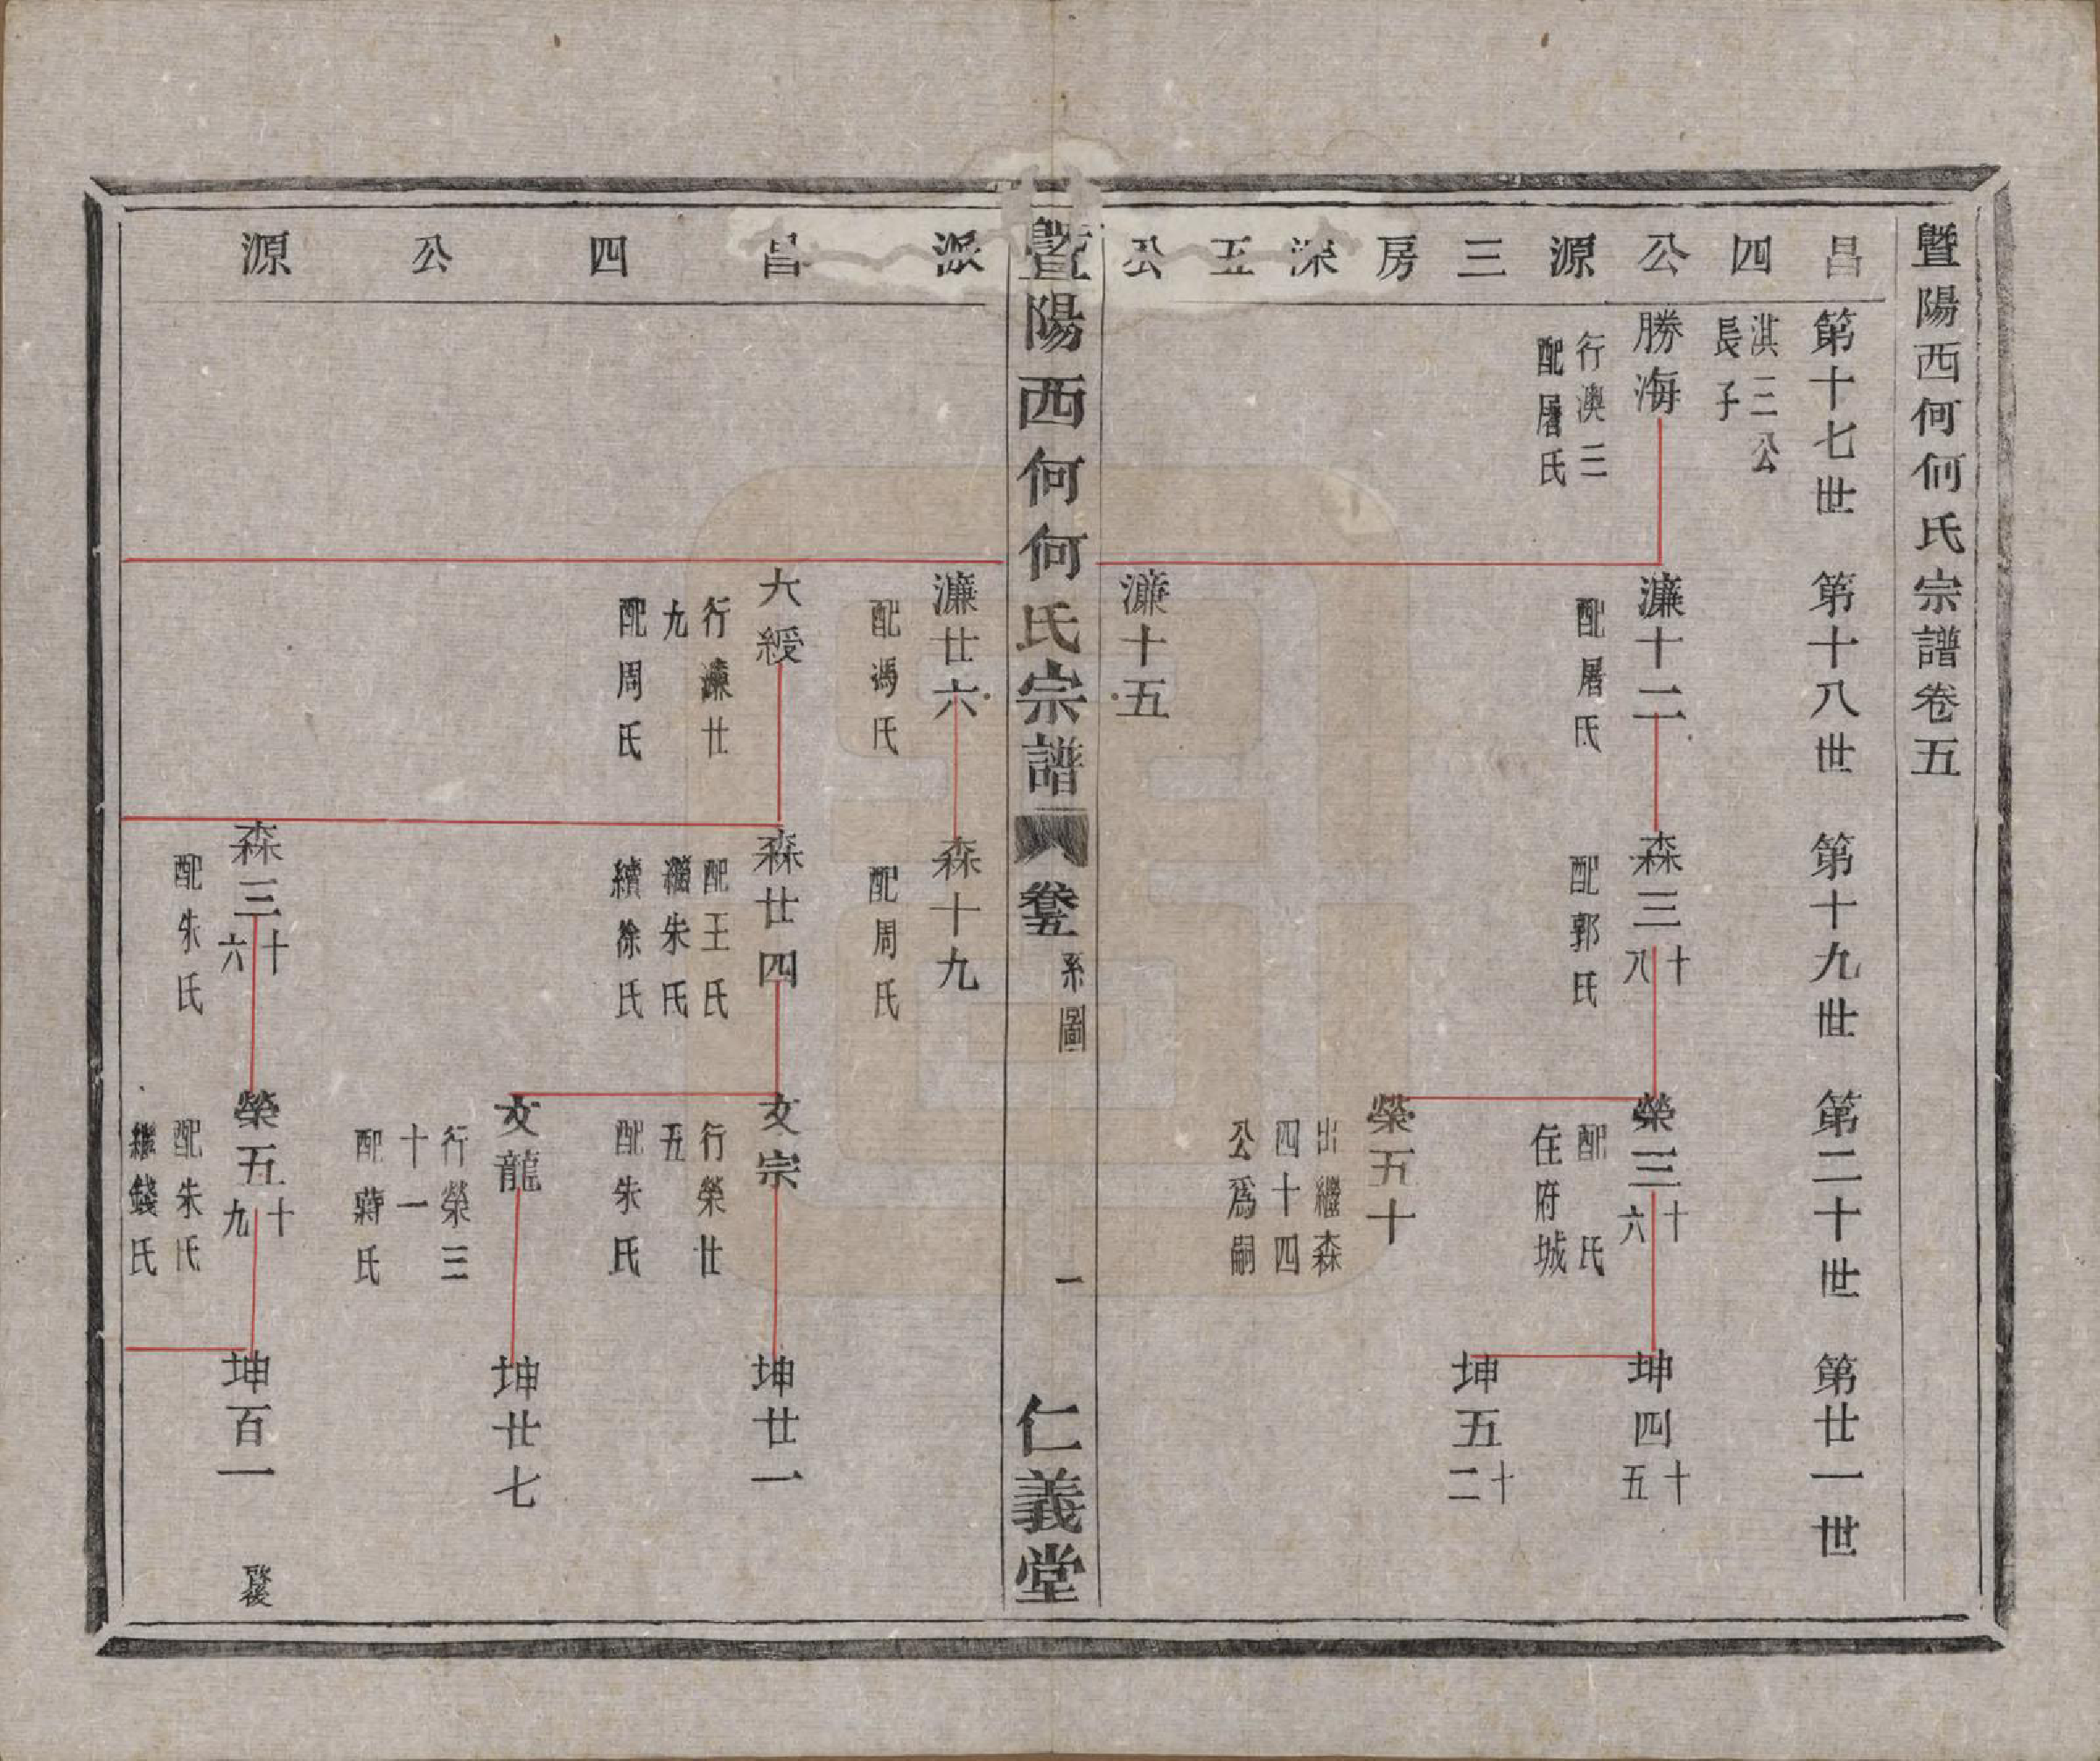 暨陽西何何氏宗譜卷五
昌四公源三房深五公派
第十七世
第十八世
第十九世
第二十世
第廿一世
淇三公
長子
勝海
行澳三
配屠氏
濂十二
配屠氏
森三十八
配郭氏
榮三十六
配 氏
住府城
坤四十五
坤五十二
榮五十
出繼森
四十四
公爲嗣
濂十五
暨陽西何何氏宗譜
卷五
系圖
一
仁義堂
昌四公源
濂廿六
配馮氏
森十九
配周氏
大綬
行濂廿
九
配周氏
森廿四
配王氏
繼朱氏
續徐氏
文宗
行榮廿
五
配朱氏
坤廿一
文龍
行榮三
十一
配蔣氏
坤廿七
森三十六
配朱氏
榮五十九
配朱氏
繼錢氏
坤百一
啓後